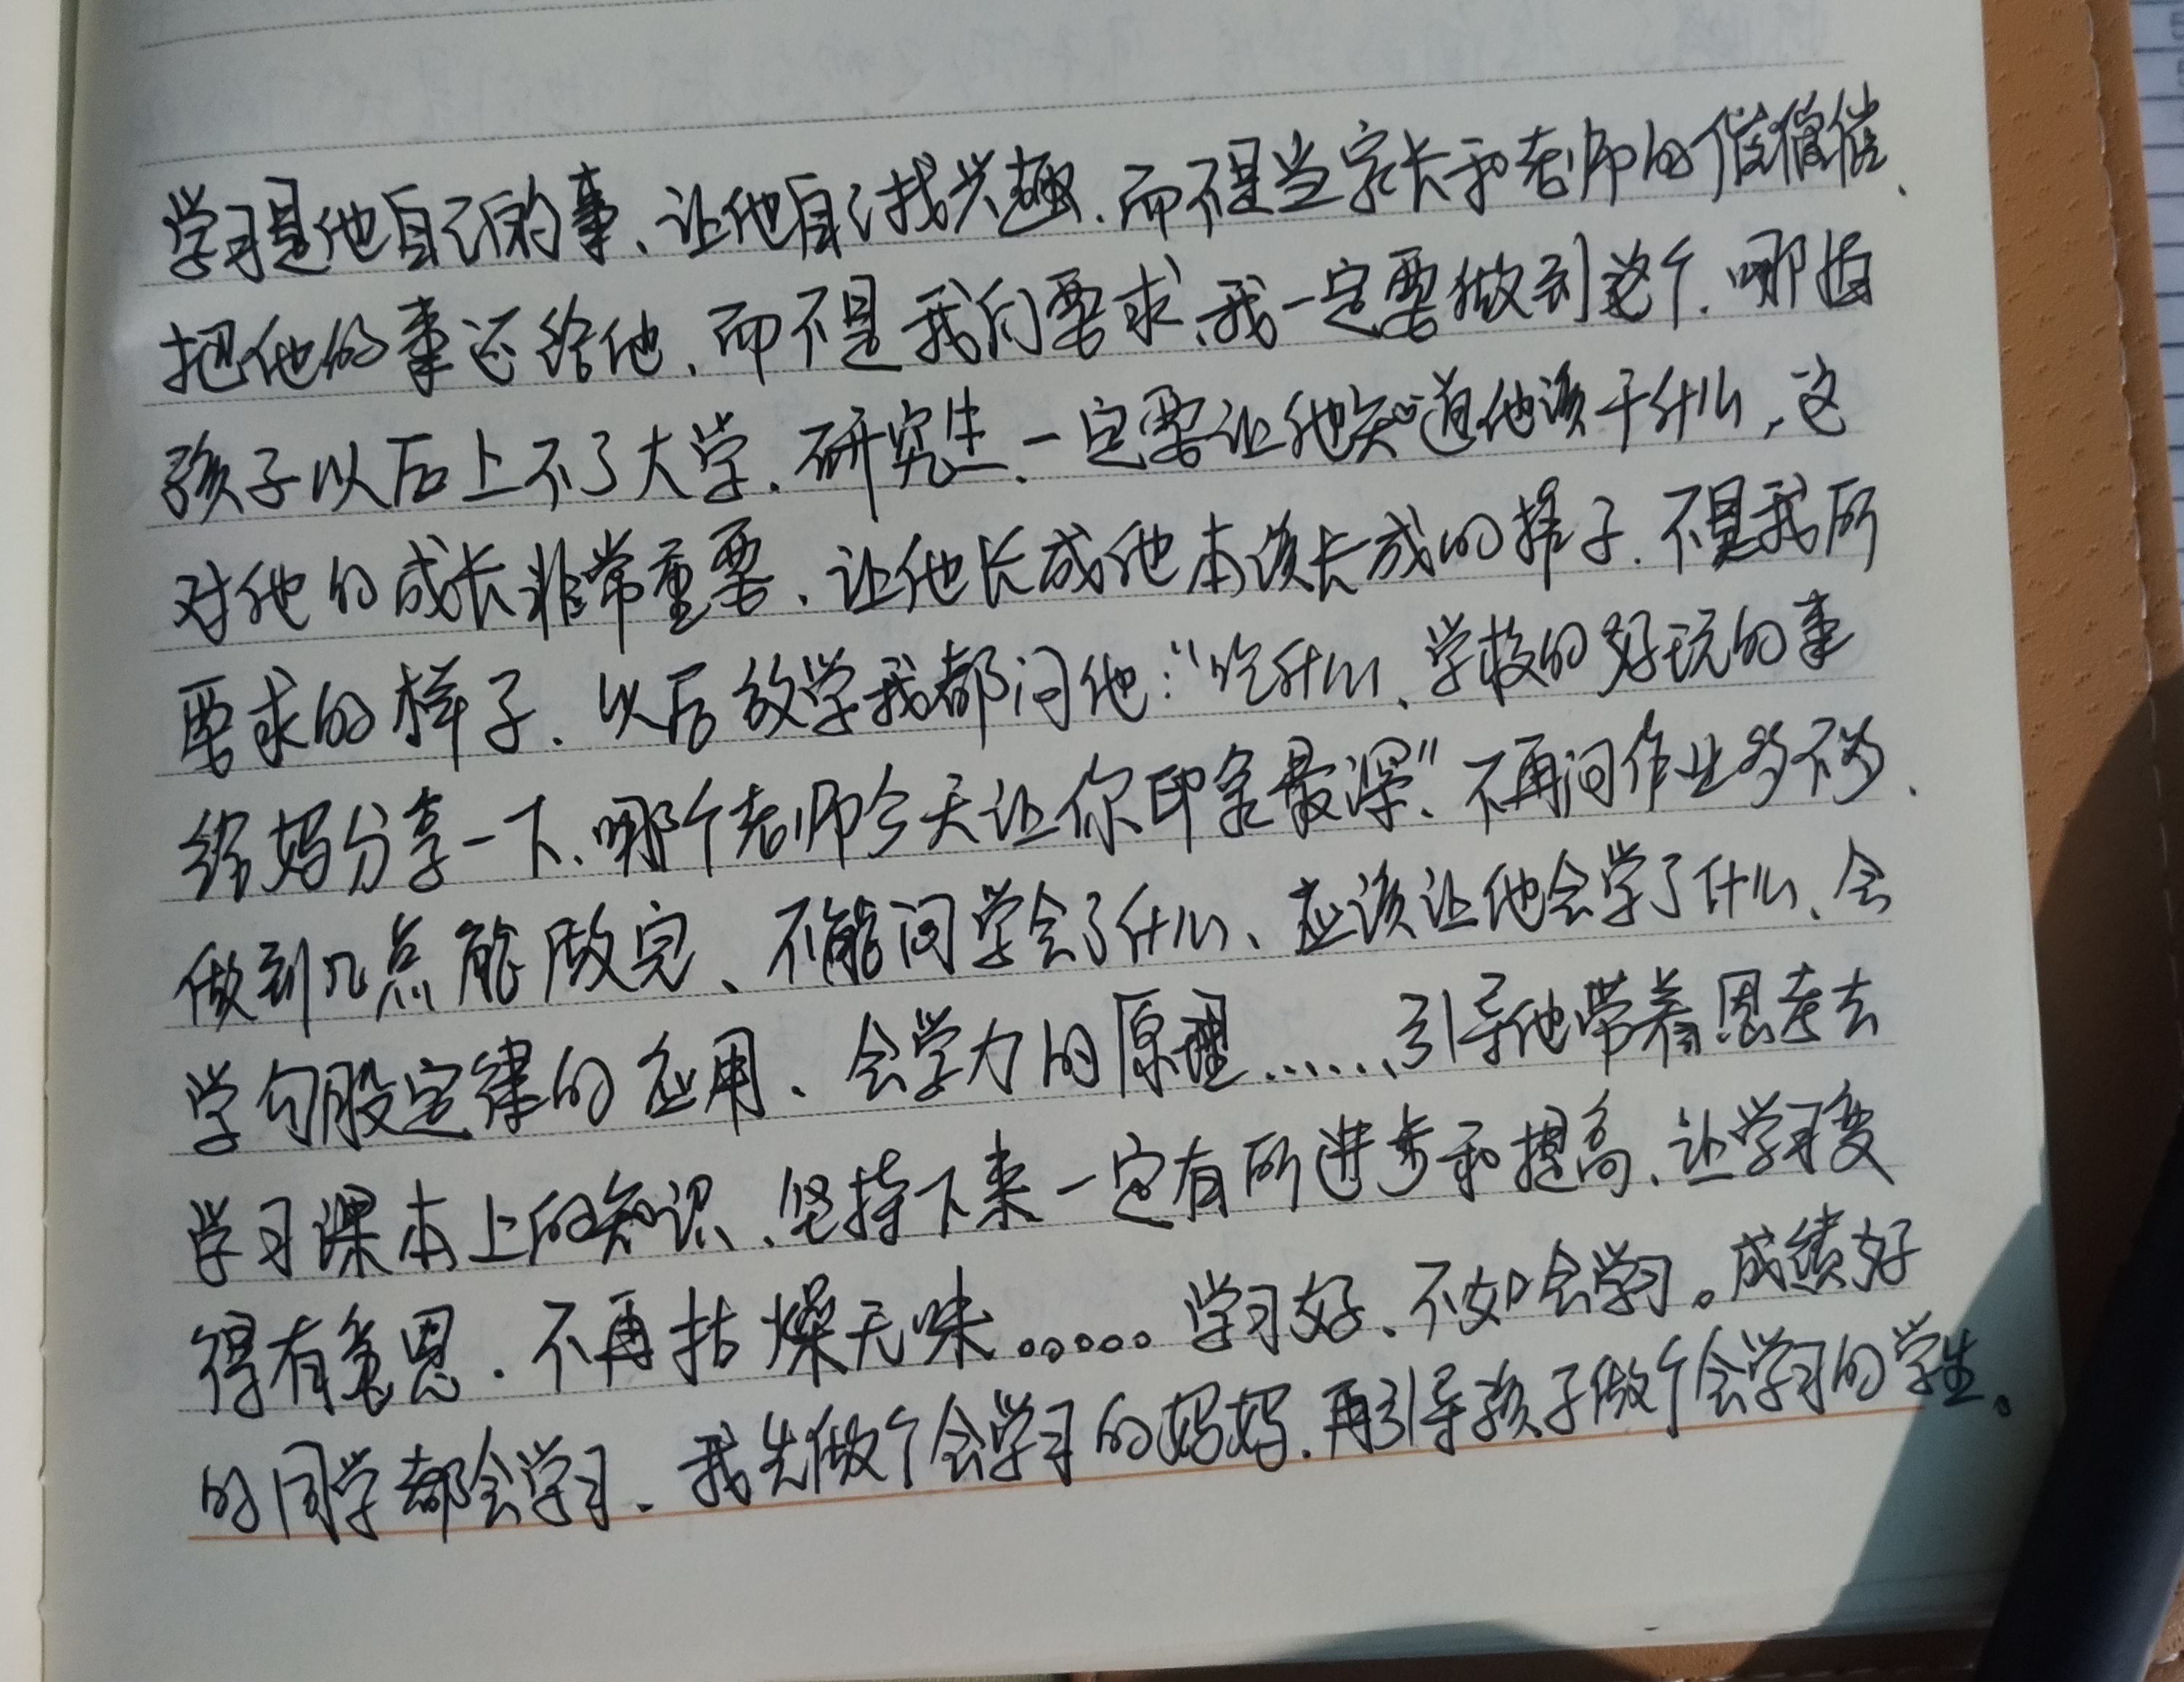 学习是他自己的事、让他自己找兴趣.而不是当家长和老师的催催催、
把他的事还给他.而不是我们要求、我一定要做到这个.哪怕
孩子以后上不了大学.研究生.一定要让他知道他该干什么,这
对他的成长非常重要、让他长成他本该长成的样子.不是我所
要求的样子.以后放学我都问他:“吃什么、学校的好玩的事
给妈分享一下、哪个老师今天让你印象最深.”不再问作业多不多、
做到几点能做完、不能问学会了什么、应该让他会学了什么、会
学勾股定律的应用、会学力的原理......引导他带着思考去
学习课本上的知识、坚持下来一定有所进步和提高、让学习变
得有意思.不再枯燥无味。。。。。学习好、不如会学习。成绩好
的同学都会学习、我先做个会学习的妈妈.再引导孩子做个会学习的学生。